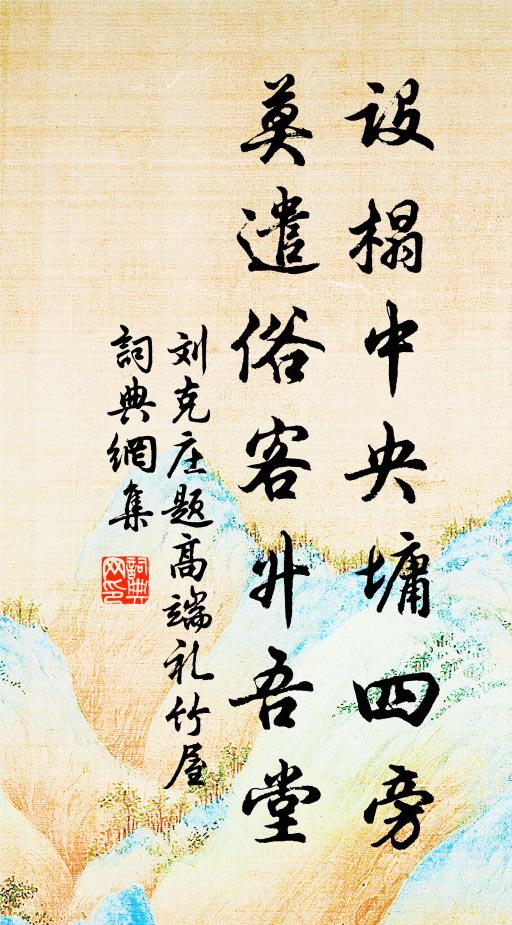 設榻中央墉四旁
莫遣俗客升吾堂
刘克庄题高端礼竹屋
詞典網集
詞典網印